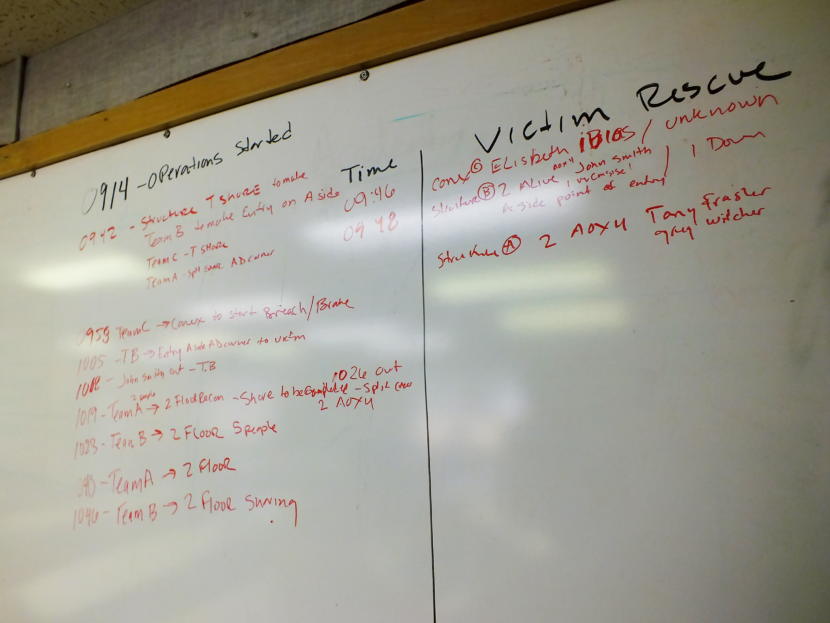 0914 - Operations Started
Time
0942 - Structure T SHORE to make 09:46
Team B to make Entry on A side 09 48
Team C - T SHORE
Team A - Split AD corner
0959 Team C → Conex to start Breach/Brake
1005 - TB → Entry A side AD corner to victim
John Smith out - T.B
1026 out
2 people
1019 - Team A → 2 Floor Recon - Shore to be completed - Split crew
2 AOX4
1023 - Team B → 2 FLOOR 5 people
Team A → 2 Floor
1046 - Team B → 2 Floor Shoring
Victim Rescue
Conex C ELisbeth / unknown
Structure B 2 Alive AOX4 John Smith / 1 Down
A side point of entry
Structure A 2 AOX4 Tony Frasier
grey witcher